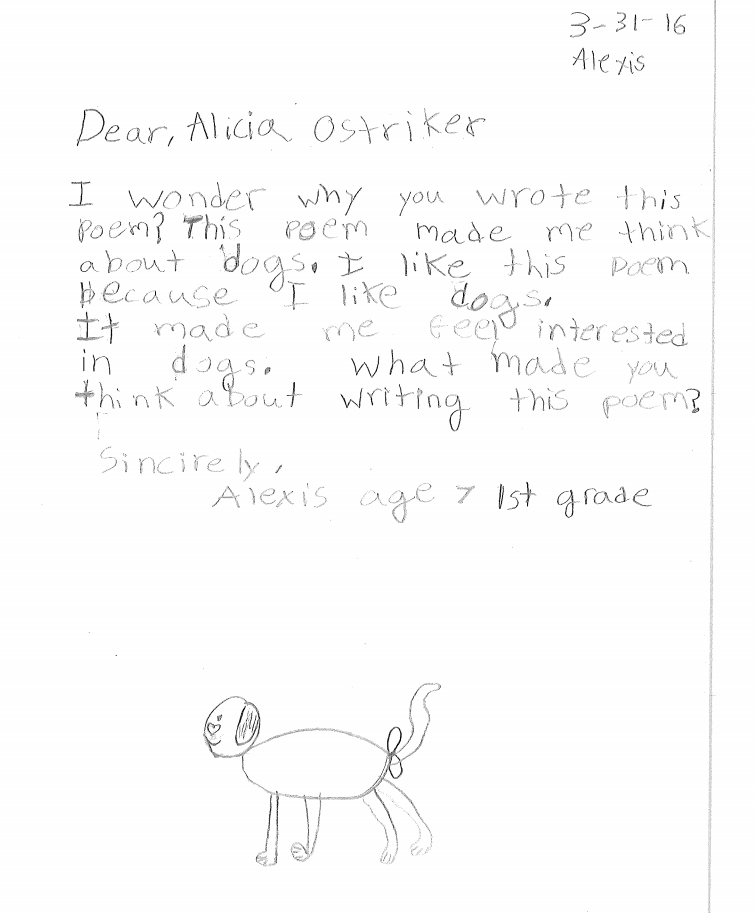 3-31-16
Alexis
Dear, Alicia Ostriker
I wonder why you wrote this
poem? This poem made me think
about dogs. I like this poem
because I like dogs.
It made me feel interested
in dogs. What made you
think about writing this poem?
Sincirely,
Alexis age 7 1st grade